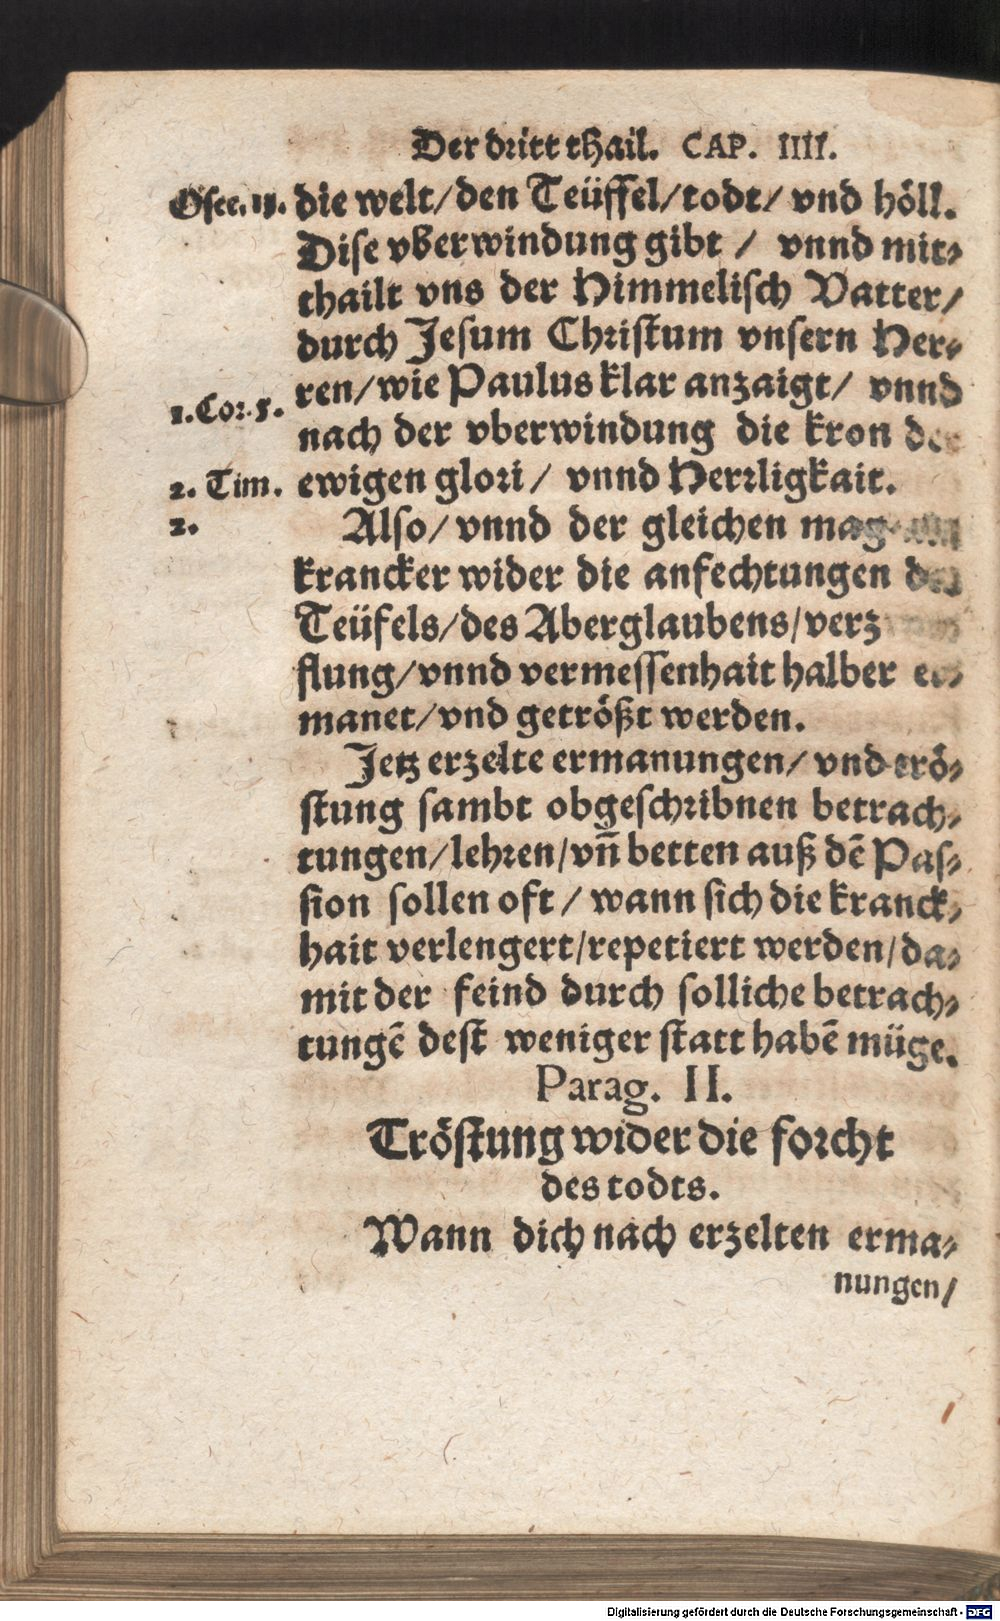 Der dritt thail. CAP. IIII.
Osee. 13. die welt/den Teüffel/todt/ vnd höll.
Dise vberwindung gibt / vnnd mit-
thailt vns der Himmelisch Vatter/
durch Jesum Christum vnsern Her-
ren/wie Paulus klar anzaigt/ vnnd
1. Cor. 5.
nach der vberwindung die kron der
2. Tim. ewigen glori/ vnnd Herrligkait.
2.
Also/ vnnd der gleichen mag
krancker wider die anfechtungen des
Teüfels/des Aberglaubens/verz
flung/vnnd vermessenhait halber er-
manet/vnd getrößt werden.
Jetz erzelte ermanungen/ vnd trö-
stung sambt obgeschribnen betrach-
tungen/lehren/vñ betten auß dē Pas-
sion sollen oft / wann sich die kranck-
hait verlengert/repetiert werden/da-
mit der feind durch solliche betrach-
tungē dest weniger statt habē müge.
Parag. II.
Tröstung wider die forcht
des todts.
Wann dich nach erzelten erma-
nungen/
Digitalisierung gefördert durch die Deutsche Forschungsgemeinschaft - DFG